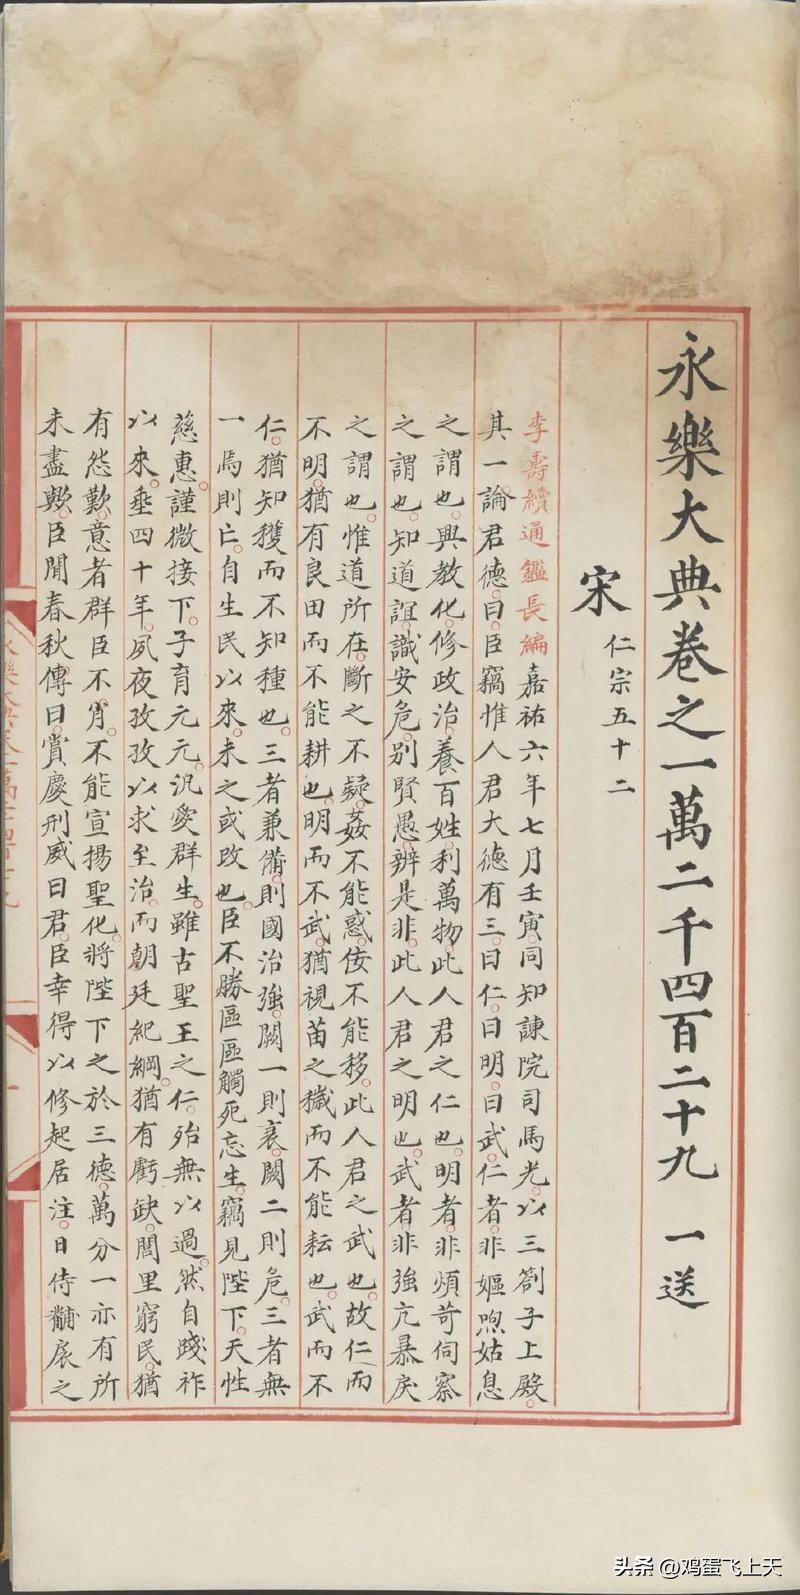 永樂大典卷之一萬二千四百二十九 一送
宋 仁宗五十二
李燾續通鑑長編嘉祐六年七月壬寅同知諫院司馬光以三劄子上殿
其一論君德曰臣竊惟人君大德有三曰仁曰明曰武仁者非嫗喣姑息
之謂也興教化修政治養百姓利萬物此人君之仁也明者非煩苛伺察
之謂也知道誼識安危別賢愚辨是非此人君之明也武者非強亢暴戾
之謂也惟道所在斷之不疑姦不能惑佞不能移此人君之武也故仁而
不明猶有良田而不能耕也明而不武猶視苗之穢而不能耘也武而不
仁猶知穫而不知種也三者兼備則國治強闕一則衰闕二則危三者無
一焉則亡自生民以來未之或改也臣不勝區區觸死忘生竊見陛下天性
慈惠謹微接下子育元元汎愛群生雖古聖王之仁殆無以過然自踐祚
以來垂四十年夙夜孜孜以求至治而朝廷紀綱猶有虧缺閭里窮民猶
有怨歎意者群臣不肖不能宣揚聖化將陛下之於三德萬分一亦有所
未盡歟臣聞春秋傳曰賞慶刑威曰君臣幸得以修起居注日侍黼扆之
永樂大典卷一萬二千四百二十九
头条 @鸡蛋飞上天